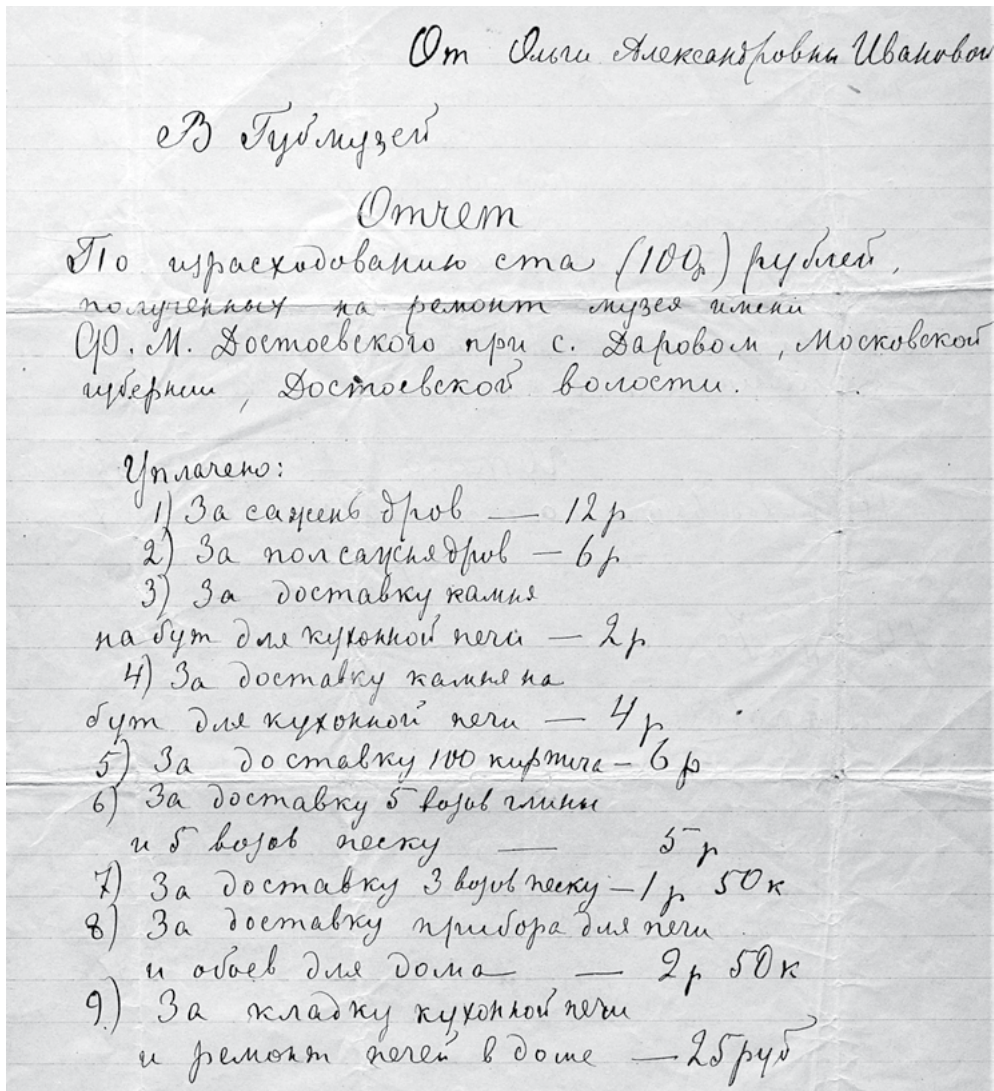 От Ольги Александровны Ивановой
В Губмузей
Отчет
По израсходованию ста (100р) рублей,
полученных на ремонт музея имени
Ф. М. Достоевского при с. Даровом, Московской
губернии, Достоевской волости.
Уплачено:
1) За сажень дров — 12 р
2) За пол сажня дров — 6 р
3) За доставку камня
на бут для кухонной печи — 2 р
4) За доставку камня на
бут для кухонной печи — 4 р
5) За доставку 100 кирпича — 6 р
6) За доставку 5 возов глины
и 5 возов песку — 5 р
7) За доставку 3 возов песку — 1 р 50 к
8) За доставку прибора для печи
и обоев для дома — 2 р 50 к
9) За кладку кухонной печи
и ремонт печей в доме — 25 руб